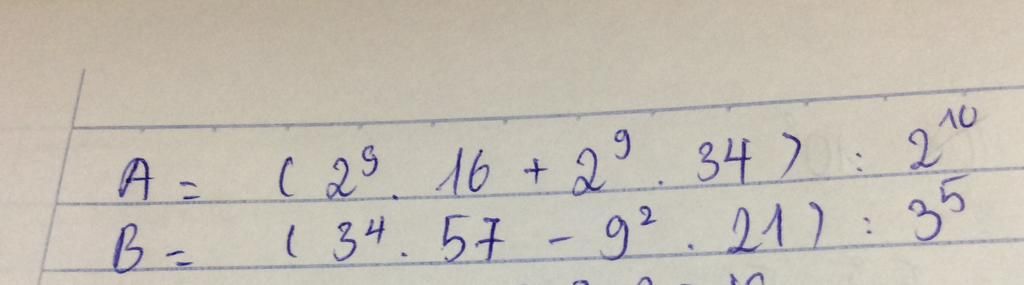 A = ( 2⁹. 16 + 2⁹ . 34 ) : 2¹⁰
B = ( 3⁴ . 57 - 9² . 21 ) : 3⁵